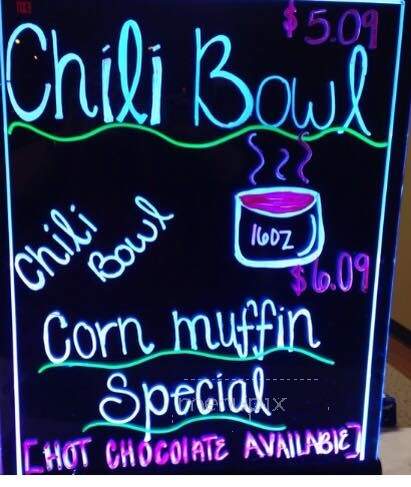 $5.09
Chili Bowl
Chili
Bowl
16OZ
$6.09
Corn muffin
Special
menupix
[HOT CHOCOlATE AVAILABlE]